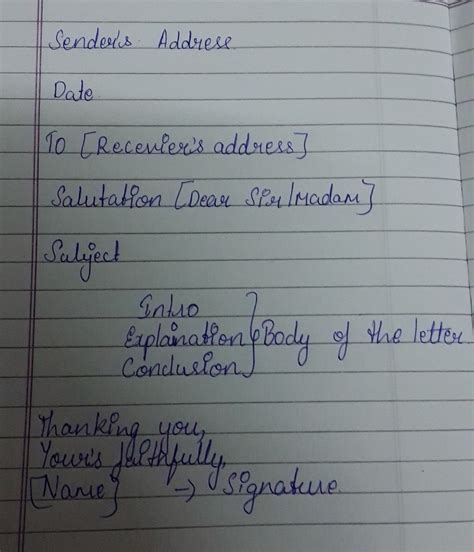 Sender's Address
Date
To [Recevier's address]
Salutation [Dear Sir/Madam]
Subject
Intro
Explaination Body of the letter
Conclusion
Thanking you,
Your's faithfully,
[Name] → Signature